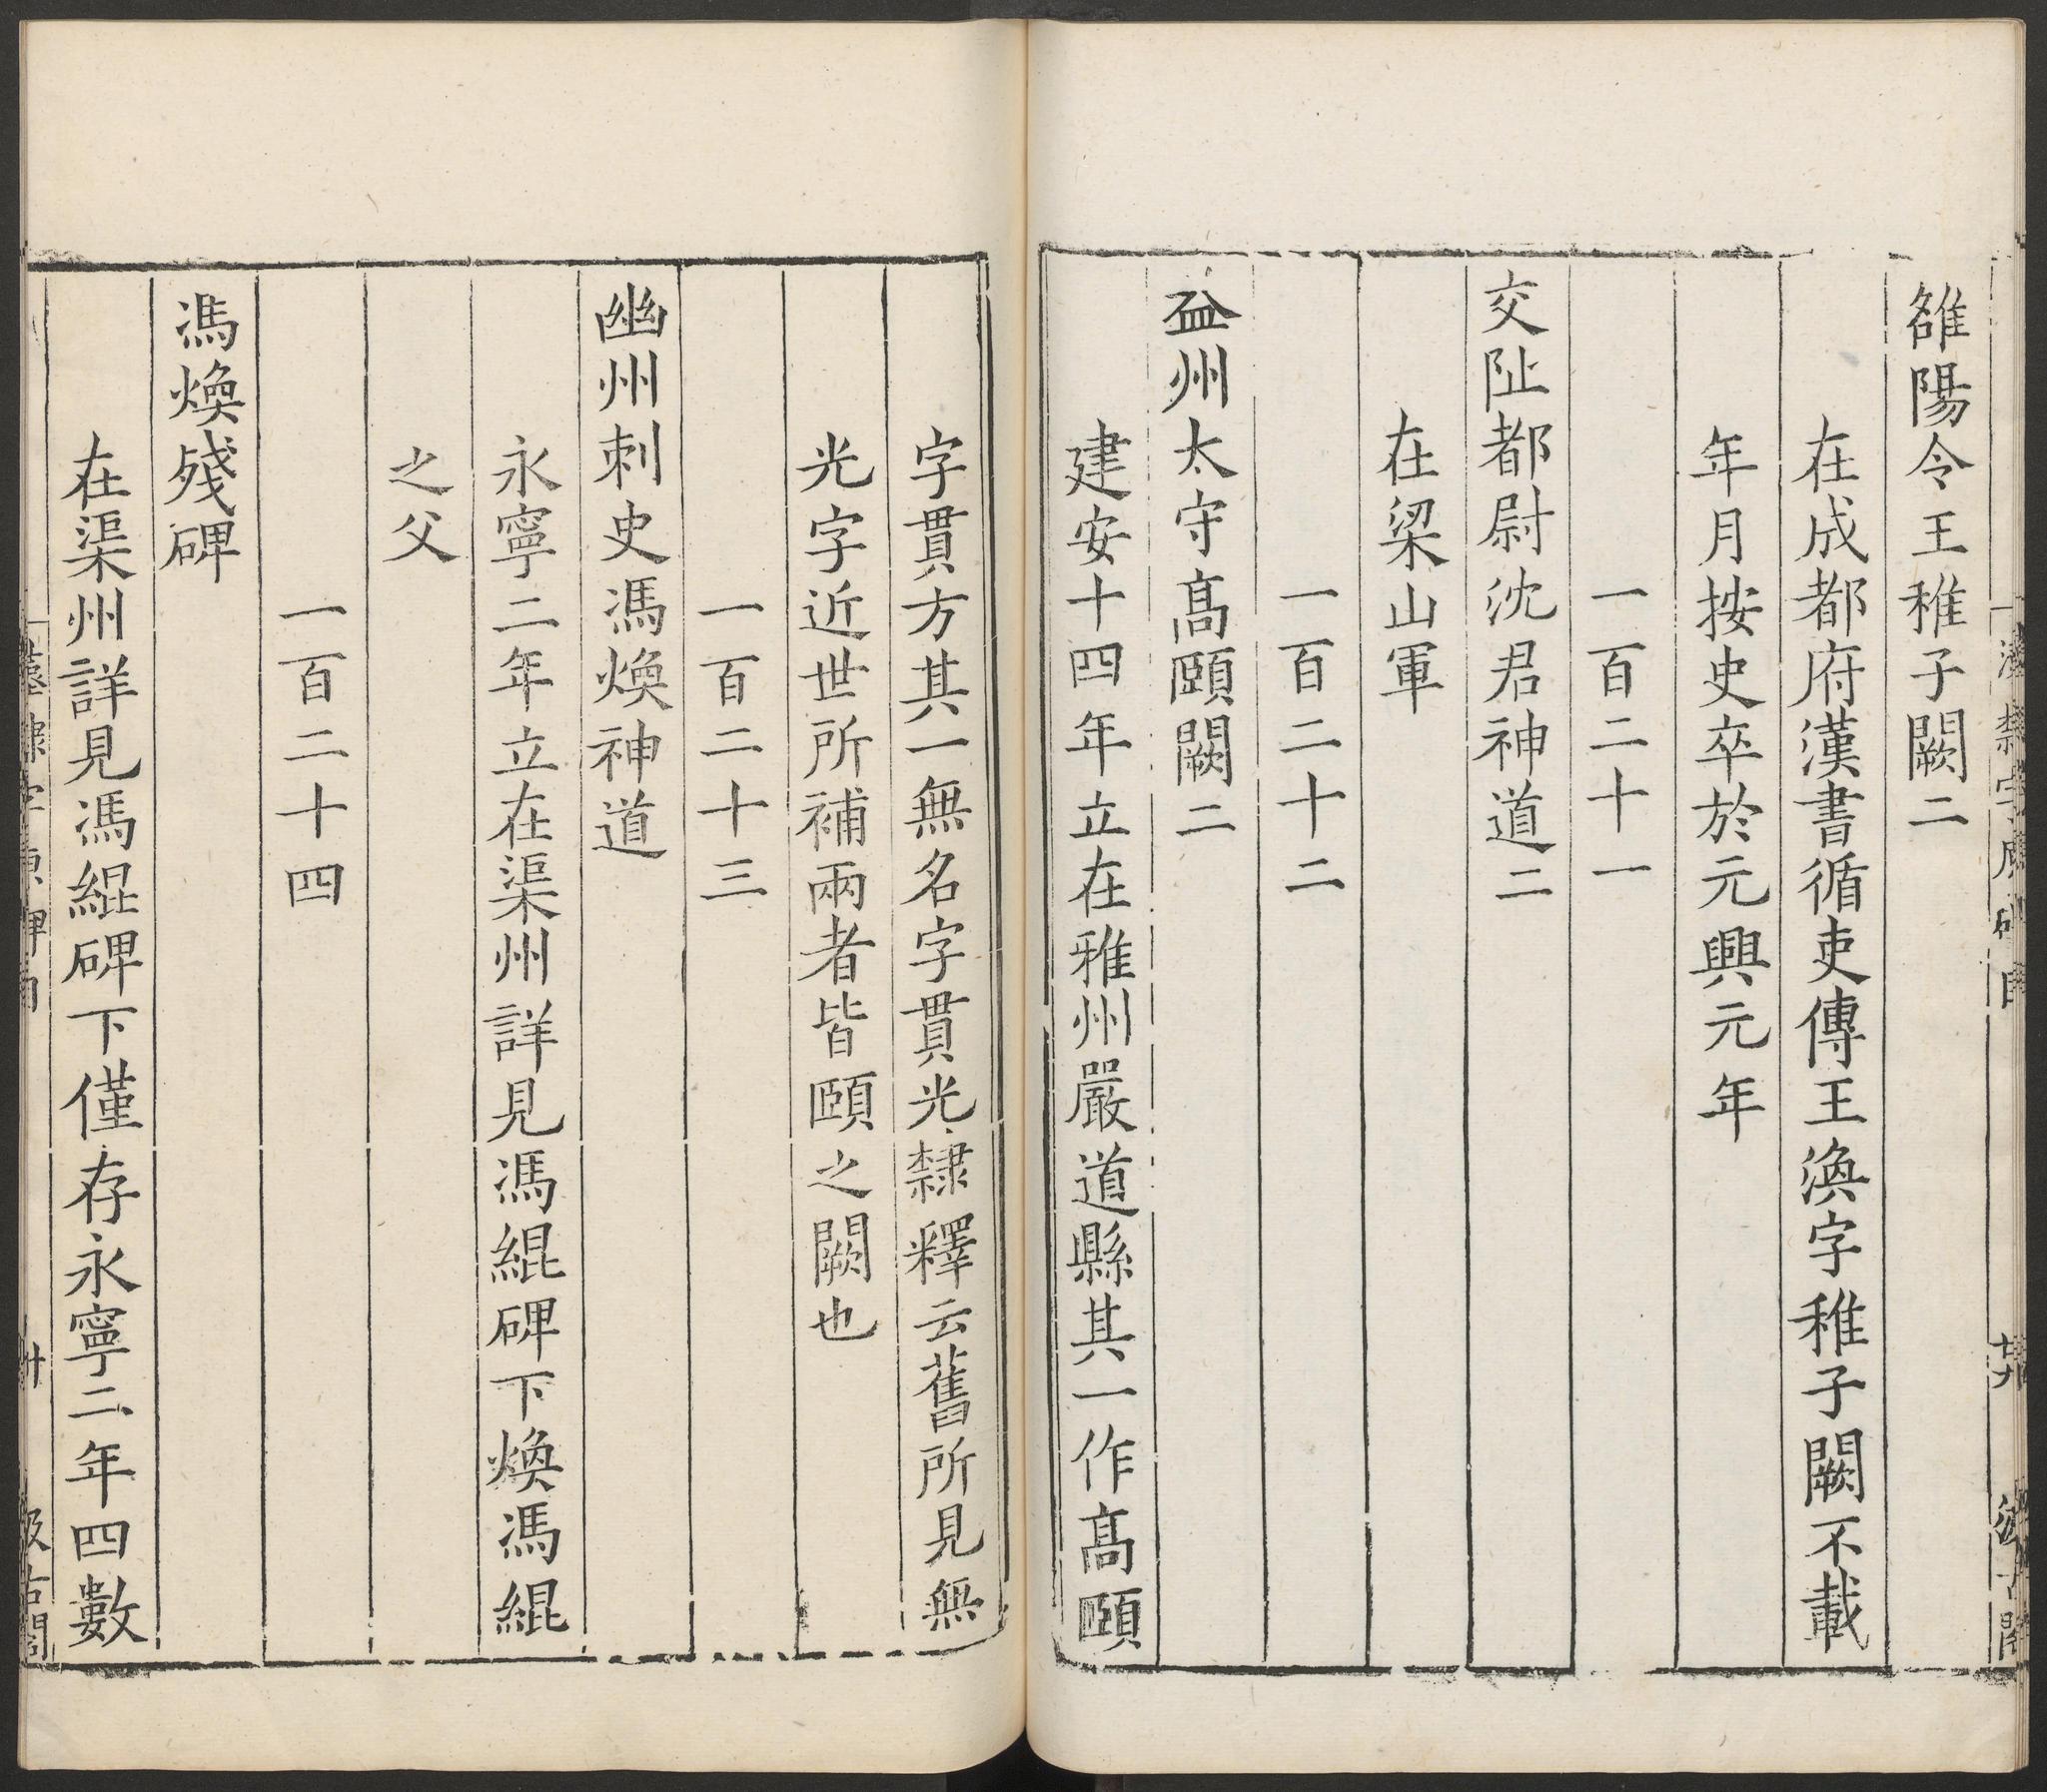 雒陽令王稚子闕二
在成都府漢書循吏傳王渙字稚子闕不載
年月按史卒於元興元年
一百二十一
交阯都尉沈君神道二
在梁山軍
一百二十二
益州太守高頤闕二
建安十四年立在雅州嚴道縣其一作高頤
字貫方其一無名字貫光隸釋云舊所見無
光字近世所補兩者皆頤之闕也
一百二十三
幽州刺史馮煥神道
永寧二年立在渠州詳見馮緄碑下煥馮緄
之父
一百二十四
馮煥殘碑
在渠州詳見馮緄碑下僅存永寧二年四數